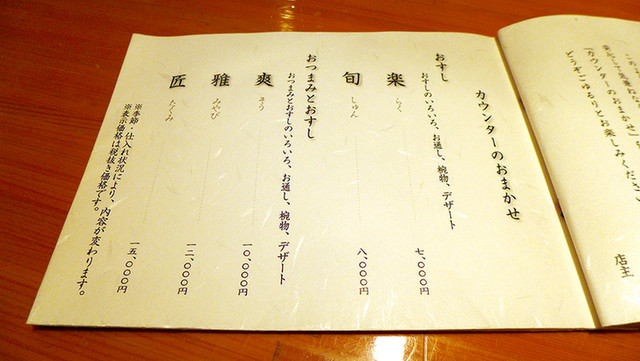 どうぞごゆるりとお楽しみください
店主
カウンターのおまかせ
おすし
おすしのいろいろ、お通し、椀物、デザート
楽
らく
七、〇〇〇円
旬
しゅん
八、〇〇〇円
おつまみとおすし
おつまみとおすしのいろいろ、お通し、椀物、デザート
爽
そう
一〇、〇〇〇円
雅
みやび
一二、〇〇〇円
匠
たくみ
一五、〇〇〇円
※季節・仕入れ状況により、内容が変わります。
※表示価格は税抜き価格です。